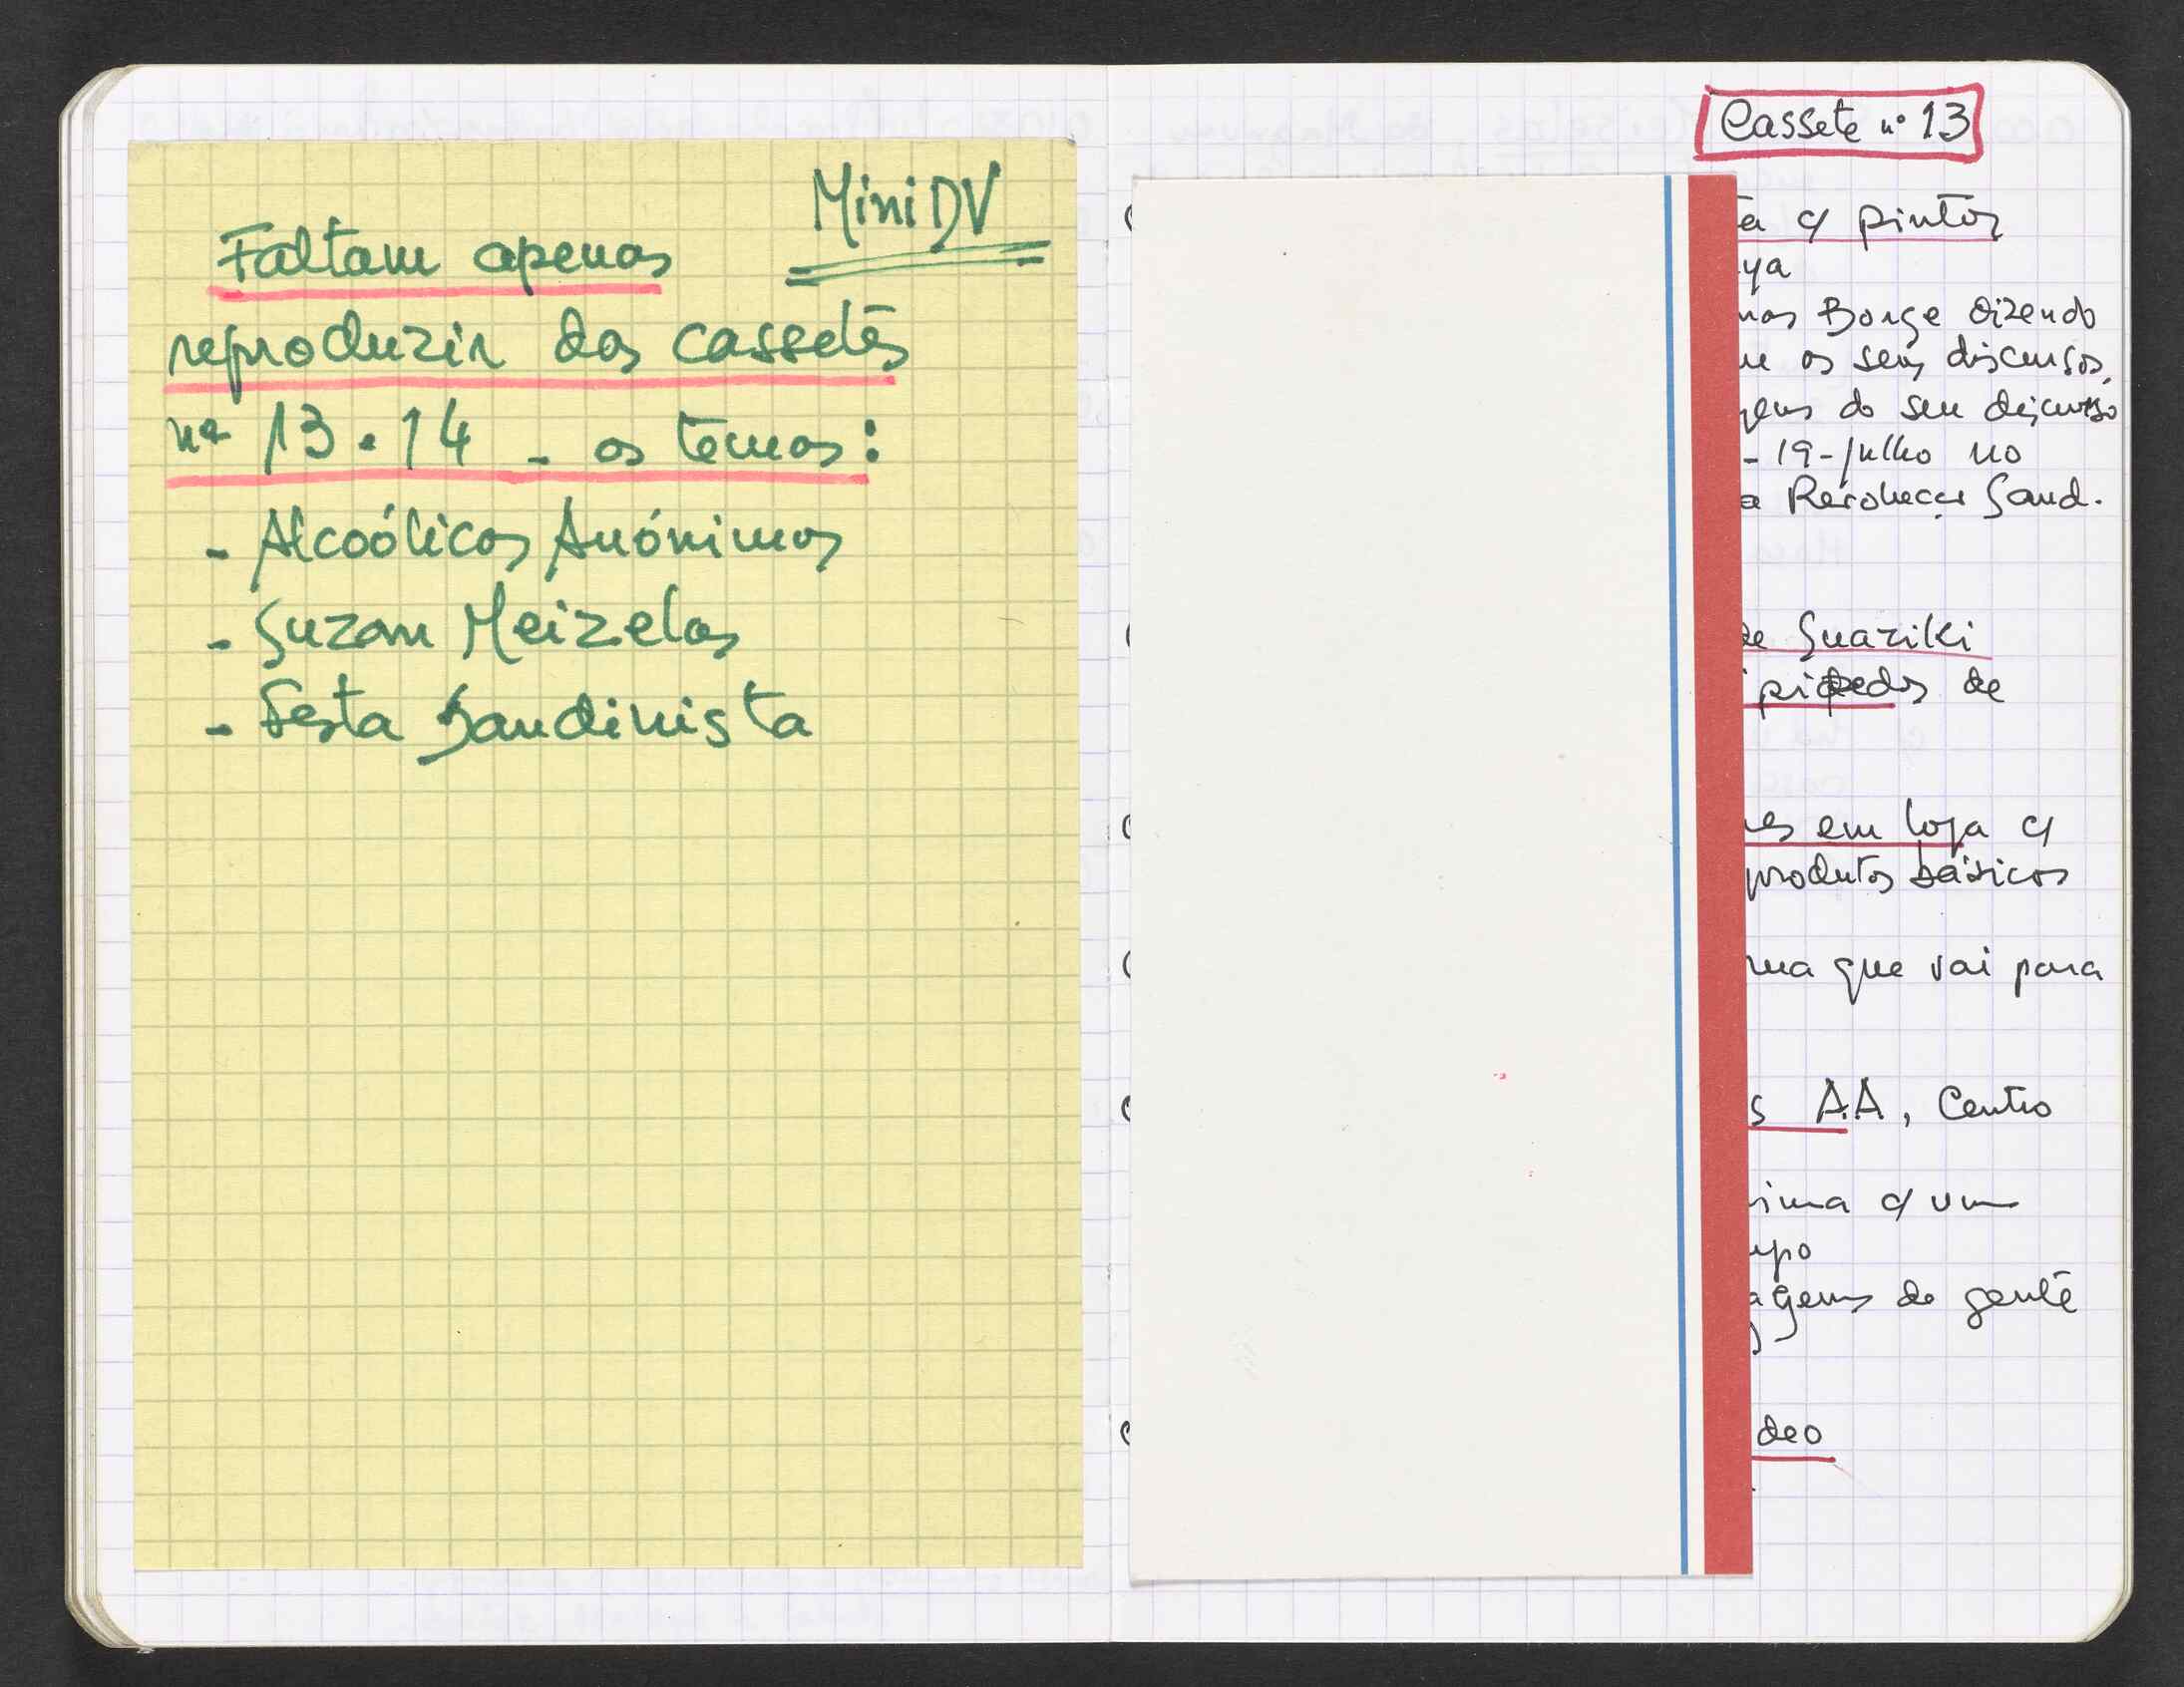 MiniDV
Faltam apenas
reproduzir das cassetes
nº 13 • 14 - os temas:
- Alcoólicos Anónimos
- Suzan Meizelas
- Festa Sandinista
Cassete nº 13
ta c/ pintor
ya
mas Borge dizendo
ue os seus discursos,
gens do seu discurso
- 19-Julho no
a Revolucão Sand.
de Guaziki
pipedos de
res em loja c/
produtos básicos
rua que vai para
s A.A, Centro
ima c/ um
upo
agens de gente
deo